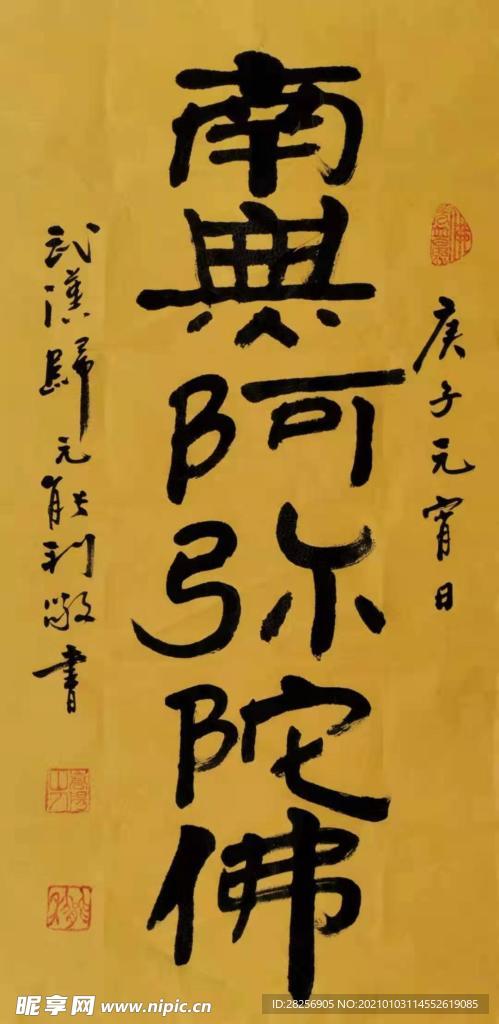 庚子元宵日
南無阿弥陀佛
武漢歸元能利敬書
昵享网 www.nipic.cn
ID:28256905 NO:20210103114552619085